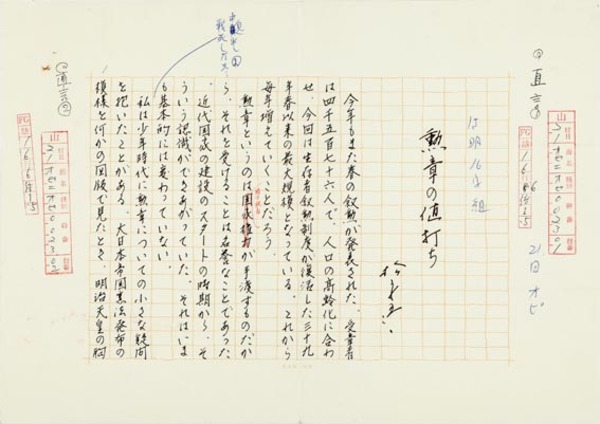 直言
21日オピ
は明16字組
勲章の値打ち
今年もまた春の叙勲が発表された。受章者
は四千五百七十六人で、人口の高齢化に合わ
せ、今回は生存者叙勲制度が復活した三十九
年春以来の最大規模となっている。これから
毎年増えていくことだろう。
勲章というのは国家権力が手渡すものだか
ら、それを受けることは名誉なことであった
近代国家の建設のスタートの時期から、そ
ういう認識ができあがっていた。それはいま
も基本的には変わっていない。
私は少年時代に勲章についての小さな疑問
を抱いたことがある。大日本帝国憲法発布の
模様を何かの図版で見たとき、明治天皇の胸
直言②